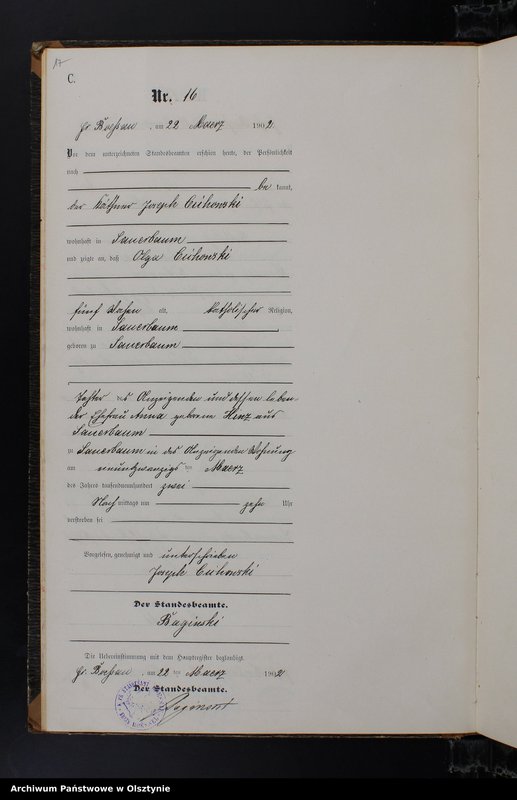 17
C.
Nr. 16
Gr Bössau, am 22 Maerz 1902
Vor dem unterzeichneten Standesbeamten erschien heute, der Persönlichkeit
nach
be kannt,
der Käthner Joseph Cichowski
wohnhaft in Sauerbaum
und zeigte an, daß Olga Cichowski
fünf Wochen alt, katholischer Religion,
wohnhaft in Sauerbaum
geboren zu Sauerbaum
Tochter des Anzeigenden und dessen leben-
der Ehefrau Anna geborene Hinz aus
Sauerbaum
zu Sauerbaum in des Anzeigenden Wohnung
am ten Maerz
des Jahres tausendneunhundert zwei
Nach mittags um zehn Uhr
verstorben sei
Vorgelesen, genehmigt und unterschrieben
Joseph Cichowski
Der Standesbeamte.
Baginski
Die Uebereinstimmung mit dem Hauptregister beglaubigt.
Gr. Bössau, am 22 ten Maerz 1902
Der Standesbeamte.
Baginski
Archiwum Państwowe w Olsztynie